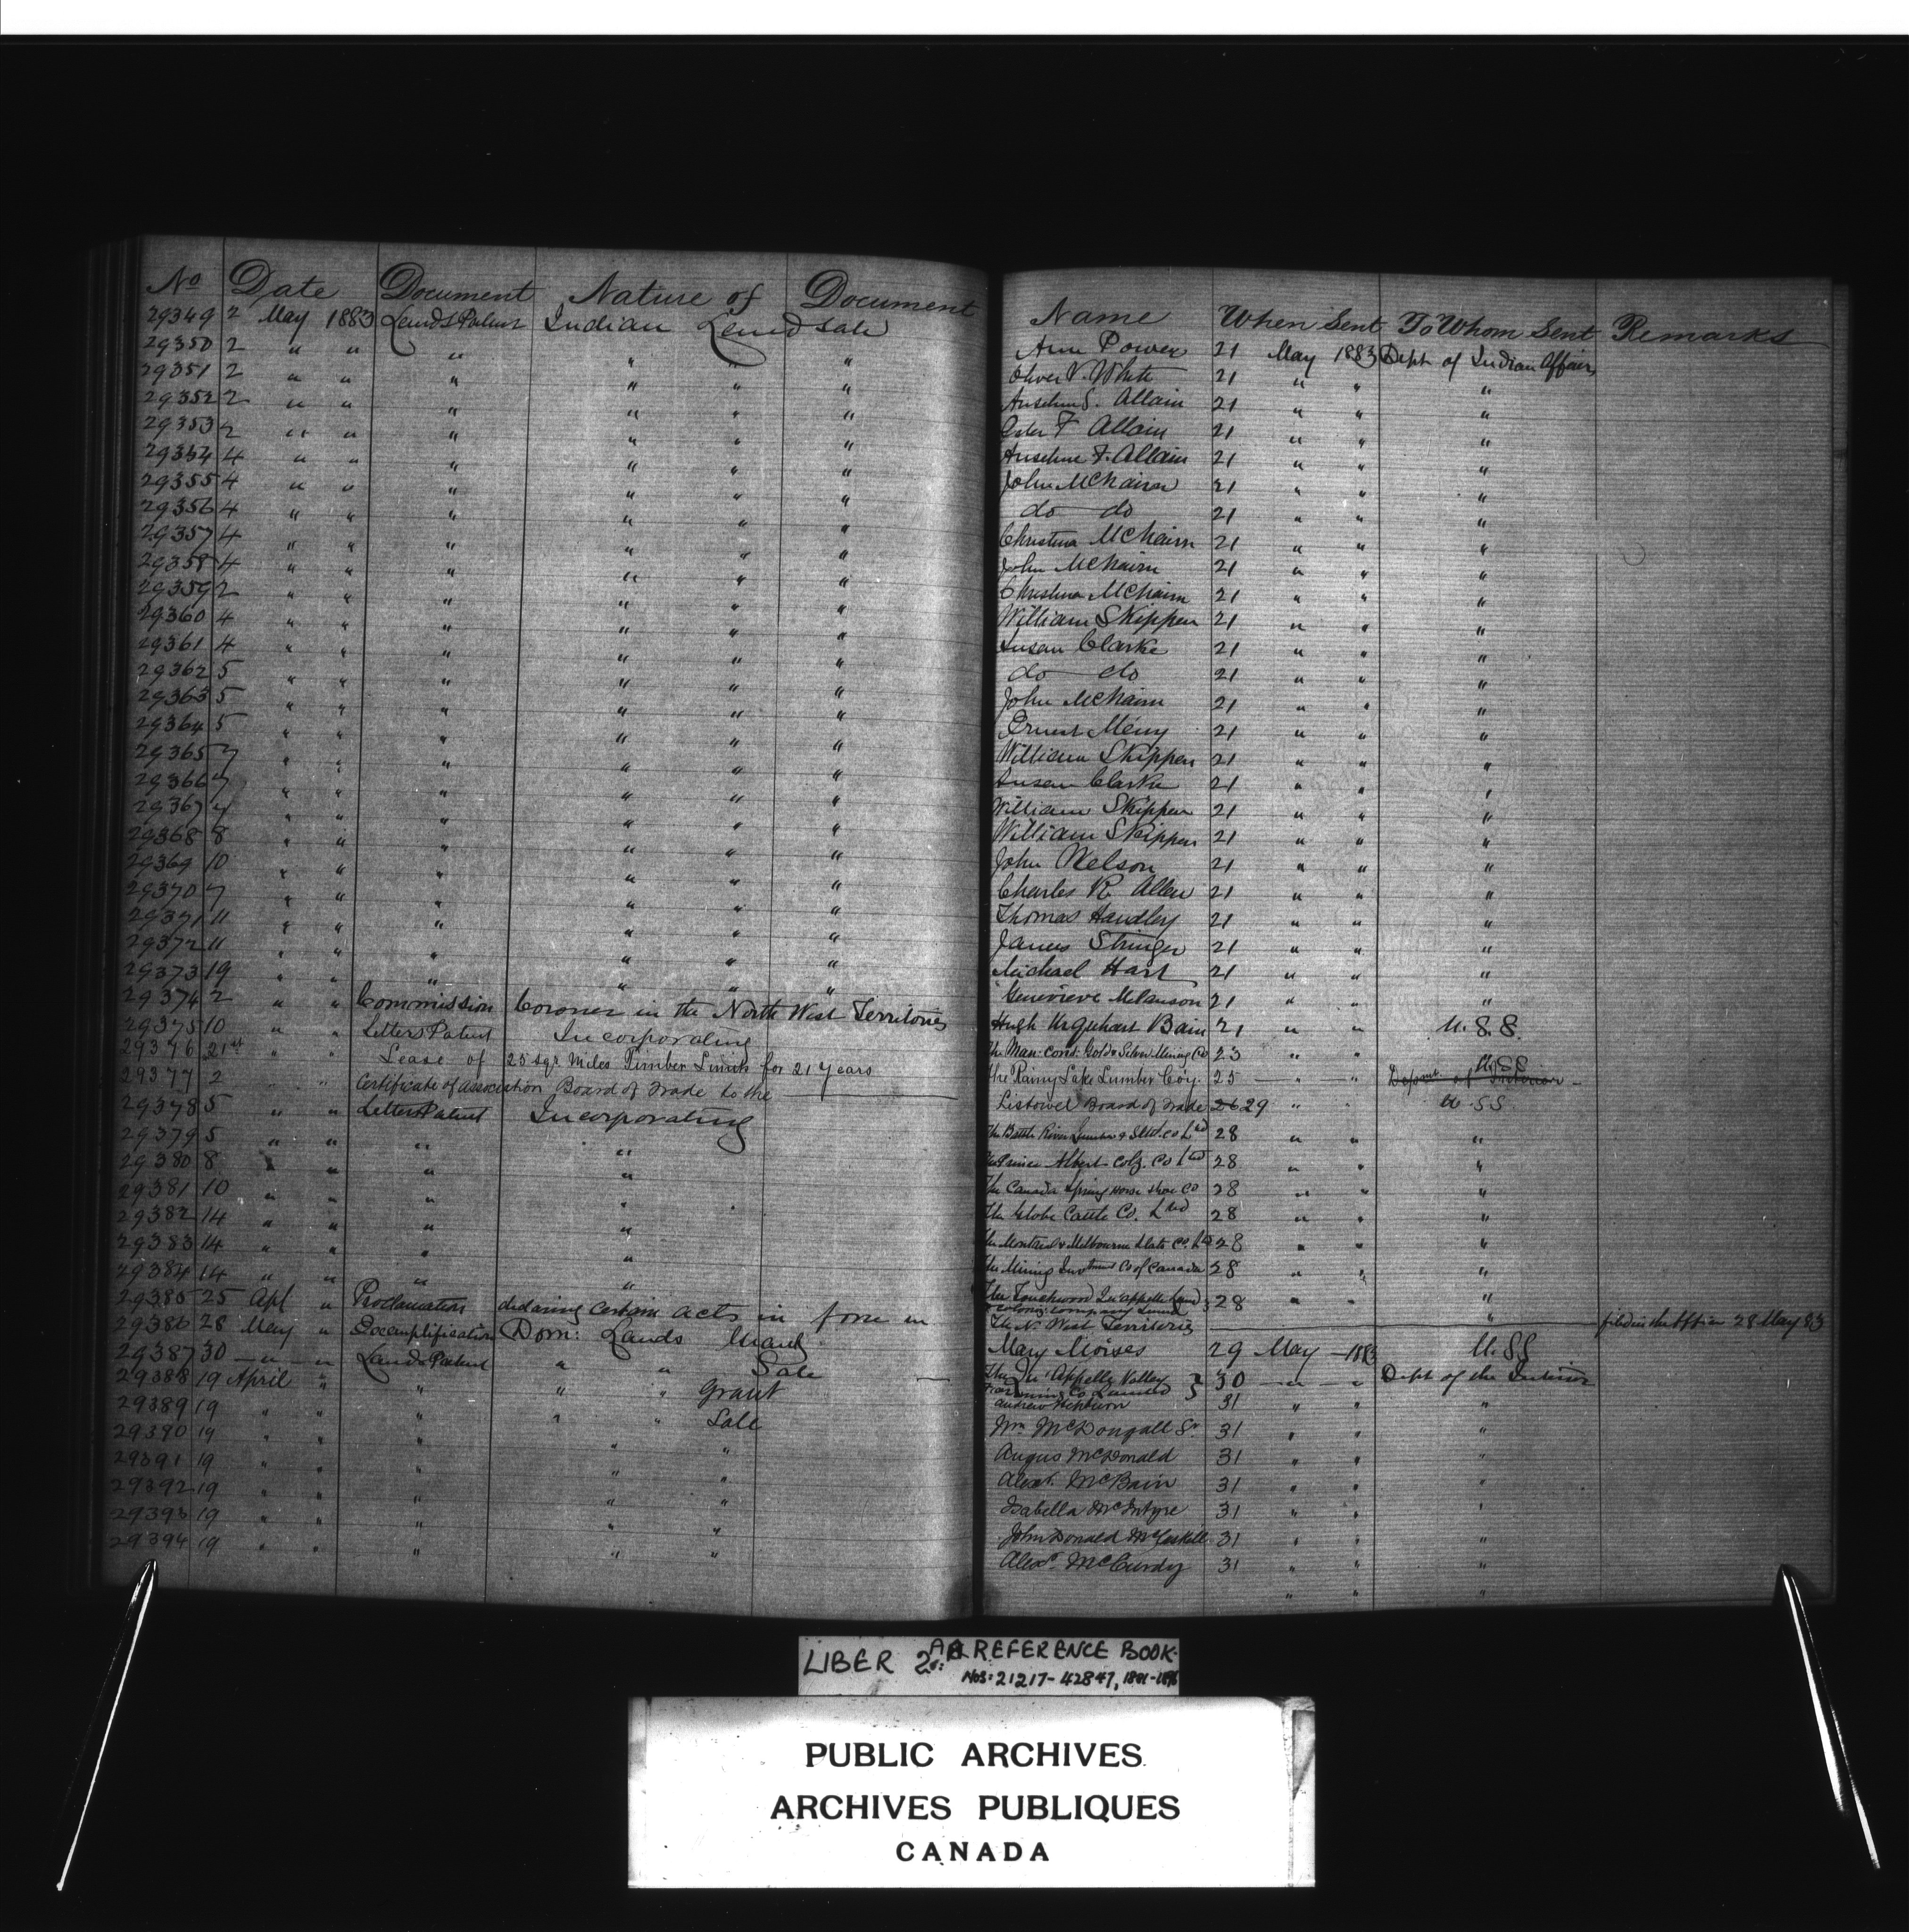 No Date Document Nature of Document Name When Sent To Whom Sent Remarks
29349 2 May 1883 Lands Patent Indian Land Sale Ann Power 21 May 1883 Dept of Indian Affairs
29350 2 " " " " " " Oliver V. White 21 " " "
29351 2 " " " " " " Anselm S. Allain 21 " " "
29352 2 " " " " " " F Allain 21 " " "
29353 2 " " " " " " Anselme F. Allain 21 " " "
29354 4 " " " " " " John McNairn 21 " " "
29355 4 " " " " " " do do 21 " " "
29356 4 " " " " " " Christina McNairn 21 " " "
29357 4 " " " " " " John McNairn 21 " " "
29358 4 " " " " " " Christina McNairn 21 " " "
29359 2 " " " " " " William Skippen 21 " " "
29360 4 " " " " " " Susan Clarke 21 " " "
29361 4 " " " " " " do do 21 " " "
29362 5 " " " " " " John McNairn 21 " " "
29363 5 " " " " " " Ernest Mény 21 " " "
29364 5 " " " " " " William Skippen 21 " " "
29365 7 " " " " " " Susan Clarke 21 " " "
29366 7 " " " " " " William Skippen 21 " " "
29367 7 " " " " " " William Skippen 21 " " "
29368 8 " " " " " " John Nelson 21 " " "
29369 10 " " " " " " Charles R Allen 21 " " "
29370 7 " " " " " " Thomas Handley 21 " " "
29371 11 " " " " " " James Stringer 21 " " "
29372 11 " " " " " " Michael Hart 21 " " "
29373 19 " " " " " " Genevieve Melanson 21 " " "
29374 2 " " Commission Coroner in the North West Territories Hugh Urquhart Bain 21 " " U.S.S.
29375 10 " " Letters Patent Incorporating The Man: Cons: Gold & Silver Mining Co 23 " " U.SS
29376 21st " " Lease of 25 sqr Miles Timber Limits for 21 Years The Rainy Lake Lumber Coy. 25 " " Deptmt. of Interior
29377 2 " " Certificate of association Board of Trade to the Listowel Board of Trade 26 29 " " U.SS.
29378 5 " " Letters Patent Incorporating The Battle River Lumber & Co Ltd 28 " " "
29379 5 " " " " The Prince Albert Colz. Co Ltd 28 " " "
29380 8 " " " " The Canada Spring Horse Shoe Co 28 " " "
29381 10 " " " " The Globe Cattle Co. Ltd 28 " " "
29382 14 " " " " The Montreal & Melbourne Slate Co. Ld 28 " " "
29383 14 " " " " The Mining Invtment Co of Canada 28 " " "
29384 14 " " " " The Touchwood Qu'appelle Land & Coloniz: Company Limited 28 " " "
29385 25 Apl " Proclamation declaring certain acts in force in The N. West Territories " filed in the Office 28 May 83
29386 28 May " Exemplification Dom: Lands Grant Mary Moises 29 May 1883 U.SS
29387 30 " " Lands Patent " " Sale The Qu'Appelle Valley Farming Co Limited 30 " " Dept of the Interior
29388 19 April " " " " Grant Andrew Hepburn 31 " " "
29389 19 " " " " " Sale Wm McDougall Sr. 31 " " "
29390 19 " " " " " Angus McDonald 31 " " "
29391 19 " " " " " Alexr. McBain 31 " " "
29392 19 " " " " " Isabella McIntyre 31 " " "
29393 19 " " " " " John Donald McCaskill 31 " " "
29394 19 " " " " " Alexr. McCurdy 31 " " "
LIBER 2A: REFERENCE BOOK.
NOS: 21217-42847, 1881-1896
PUBLIC ARCHIVES
ARCHIVES PUBLIQUES
CANADA